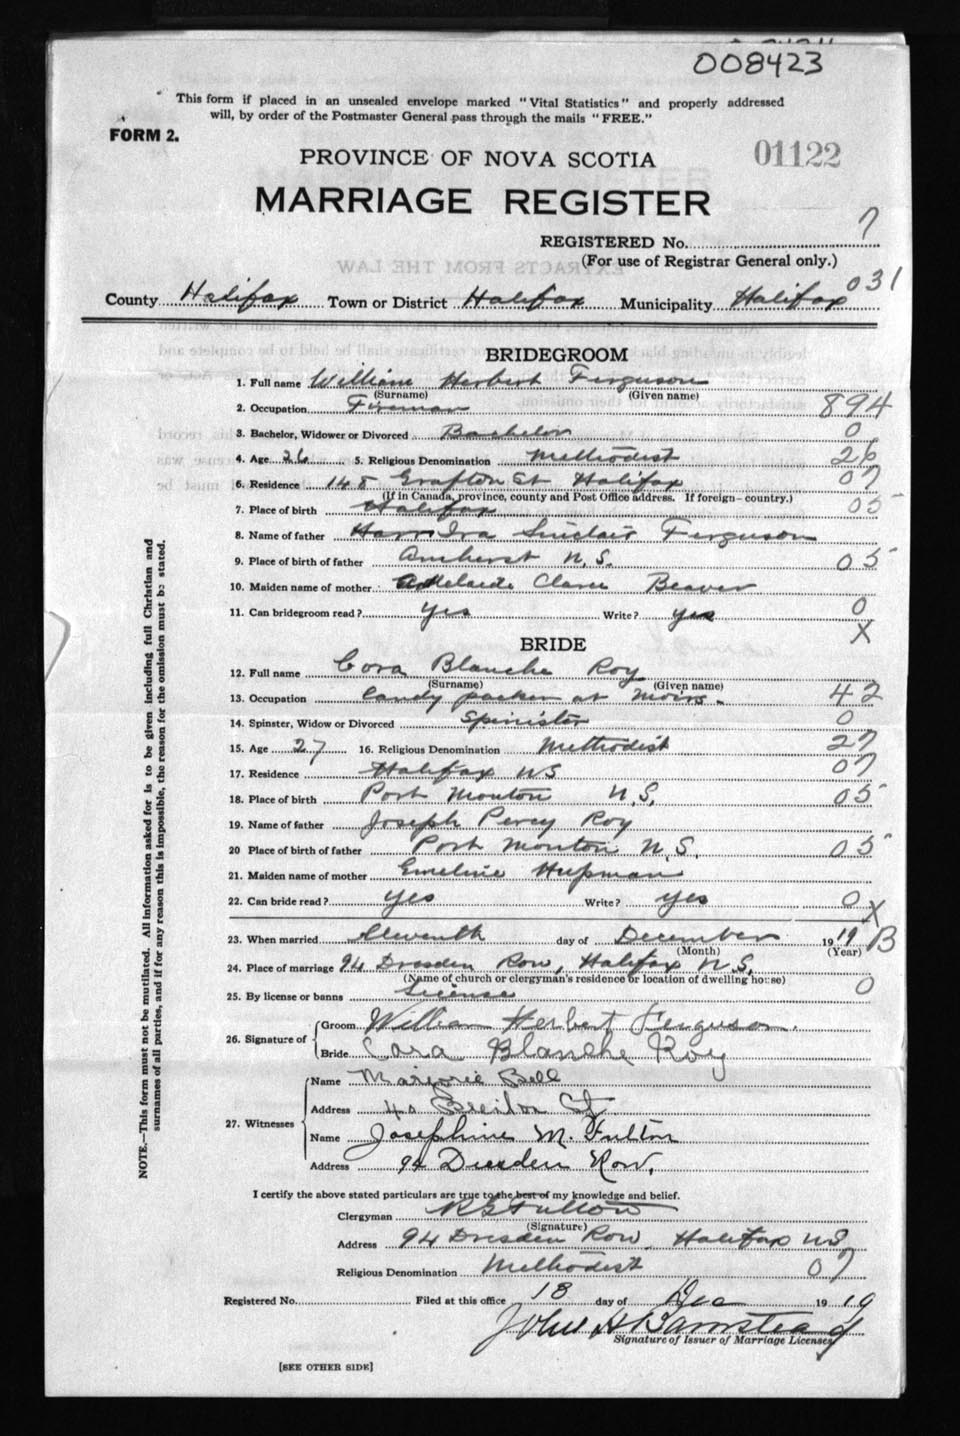 008423
This form if placed in an unsealed envelope marked "Vital Statistics" and properly addressed
will, by order of the Postmaster General pass through the mails "FREE."
FORM 2.
PROVINCE OF NOVA SCOTIA
01122
MARRIAGE REGISTER
REGISTERED No. 7
(For use of Registrar General only.)
031
County Halifax Town or District Halifax Municipality Halifax
BRIDEGROOM
1. Full name William Herbert Ferguson
(Surname) (Given name)
2. Occupation Fireman 894
3. Bachelor, Widower or Divorced Bachelor 0
4. Age 26 5. Religious Denomination Methodist 26
6. Residence 148 Grafton St Halifax 07
(If in Canada, province, county and Post Office address. If foreign- country.)
7. Place of birth Halifax 05
8. Name of father Ira Sinclair Ferguson
9. Place of birth of father Amherst N.S. 05
10. Maiden name of mother Adelaide Clara Beaver
11. Can bridegroom read? yes Write? yes 0
X
BRIDE
12. Full name Cora Blanche Roy
(Surname) (Given name)
13. Occupation Candy packer at Moirs. 42
14. Spinster, Widow or Divorced Spinister 0
15. Age 27 16. Religious Denomination Methodist 27
17. Residence Halifax NS 07
18. Place of birth Port Mouton N.S. 05
19. Name of father Joseph Percy Roy
20 Place of birth of father Port Mouton N.S. 05
21. Maiden name of mother Emeline Hupman
22. Can bride read? yes Write? yes 0 X
23. When married Eleventh day of December 1919 B
(Month) (Year)
24. Place of marriage 94 Dresden Row, Halifax N.S.
(Name of church or clergyman's residence or location of dwelling house) 0
25. By license or banns License
26. Signature of
Groom William Herbert Ferguson.
Bride Cora Blanche Roy
27. Witnesses
Name Marjorie Bell
Address 40 St
Name Josephine M. Fulton
Address 94 Dresden Row.
I certify the above stated particulars are true to the best of my knowledge and belief.
Clergyman Fulton
(Signature)
Address 94 Dresden Row Halifax NS
Religious Denomination Methodist 07
Registered No. Filed at this office 13 day of Dec 1919
John H Barnstead
Signature of Issuer of Marriage Licenses
[SEE OTHER SIDE]
NOTE.—This form must not be mutilated. All information asked for is to be given including full Christian and
surnames of all parties, and if for any reason this is impossible, the reason for the omission must be stated.